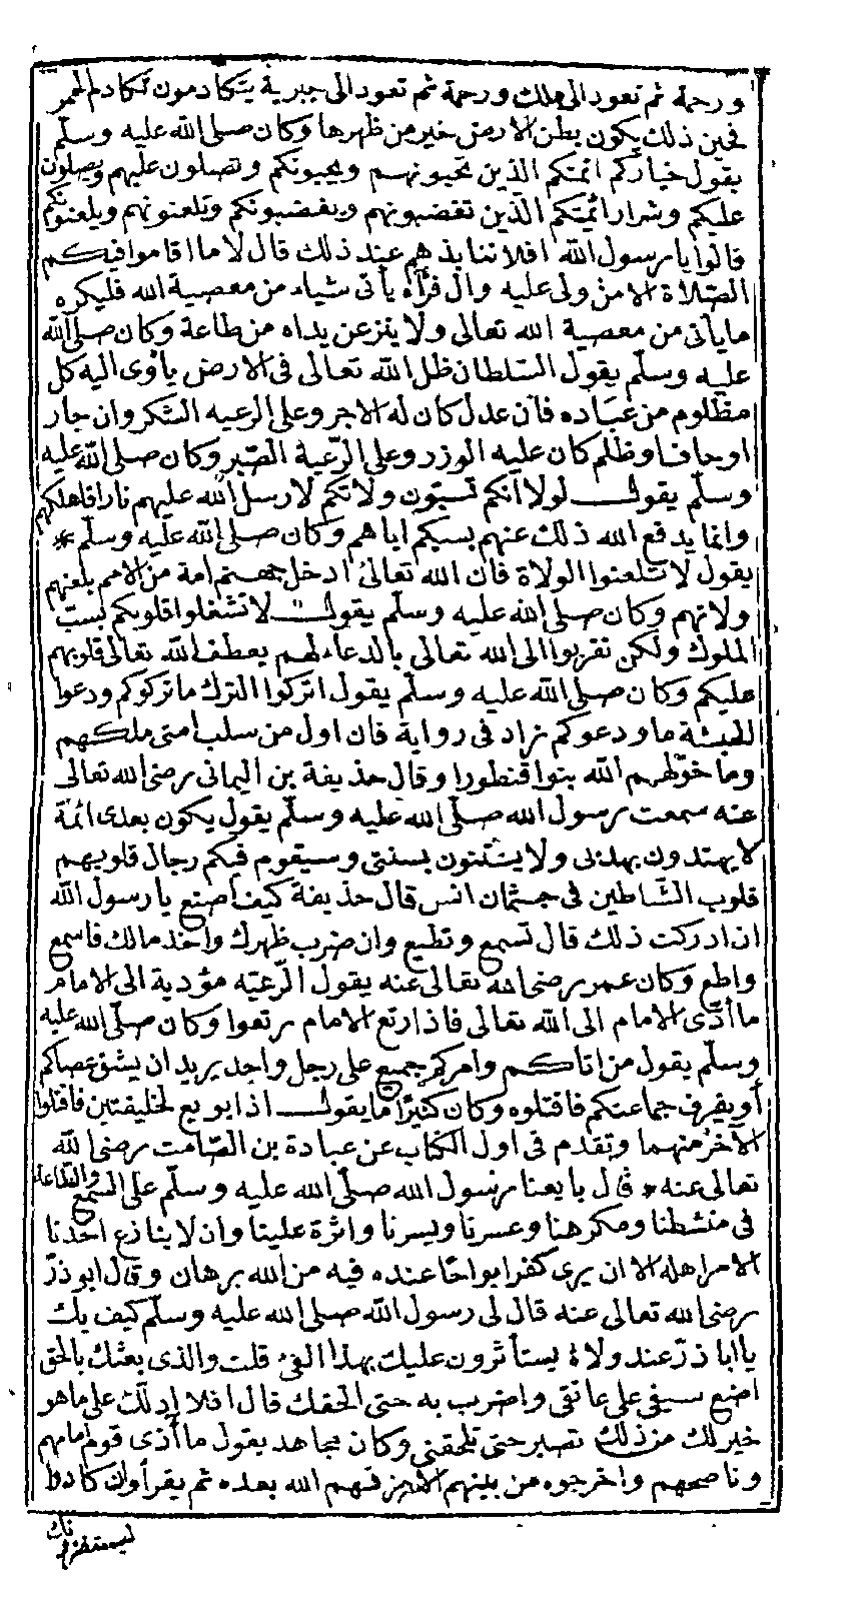 ورحمة ثم تعود الى ملك ورحمة ثم تعود الى جبرية يتكادمون تكادم الحمر
فحين ذلك يكون بطن الارض خير من ظهرها وكان صلى الله عليه وسلم
يقول خياركم ائمتكم الذين تحبونهم ويحبونكم وتصلون عليهم ويصلون
عليكم وشرار ائمتكم الذين تغضبونهم ويغضبونكم وتلعنونهم ويلعنونكم
قالوا يا رسول الله افلا ننابذهم عند ذلك قال لا ما اقاموا فيكم
الصلاة الا من ولى عليه وال فرآه يأتى شياء من معصية الله فليكره
ما يأتى من معصية الله تعالى ولا ينزعن يداه من طاعة وكان صلى الله
عليه وسلم يقول السلطان ظل الله تعالى فى الارض يأوى اليه كل
مظلوم من عباده فان عدل كان له الاجر وعلى الرعيه الشكر وان جار
او حاف او ظلم كان عليه الوزر وعلى الرعية الصبر وكان صلى الله عليه
وسلم يقول لولا انكم تسبون ولاتكم لارسل الله عليهم نارا فاهلكهم
وانما يدفع الله ذلك عنهم بسبكم اياهم وكان صلى الله عليه وسلم *
يقول لا تلعنوا الولاة فان الله تعالى ادخل جهنم امة من الامم بلعنهم
ولاتهم وكان صلى الله عليه وسلم يقول لا تشغلوا قلوبكم بسب
الملوك ولكن تقربوا الى الله تعالى بالدعاء لهم يعطف الله تعالى قلوبهم
عليكم وكان صلى الله عليه وسلم يقول اتركوا الترك ما تركوكم ودعوا
الحبشة ما ودعوكم زاد فى رواية فان اول من سلب امتى ملكهم
وما خولهم الله بنوا قنطورا وقال حذيفة بن اليمانى رضى الله تعالى
عنه سمعت رسول الله صلى الله عليه وسلم يقول يكون بعدى ائمة
لا يهتدون بهديى ولا يستنون بسنتى وسيقوم فيكم رجال قلوبهم
قلوب الشاطين فى جثمان انس قال حذيفة كيف اصنع يا رسول الله
ان ادركت ذلك قال تسمع وتطيع وان ضرب ظهرك واخذ مالك فاسمع
واطع وكان عمر رضى الله تعالى عنه يقول الرعيه مؤدية الى الامام
ما أدى الامام الى الله تعالى فاذا رتع الامام رتعوا وكان صلى الله عليه
وسلم يقول من اتاكم وامركم جميع على رجل واحد يريد ان يشق عصاكم
أو يفرق جماعتكم فاقتلوه وكان كثيرا ما يقول اذا بويع لخليفتين فاقتلوا
الآخر منهما وتقدم فى اول الكتاب عن عبادة بن الصامت رضى الله
تعالى عنه * قال بايعنا رسول الله صلى الله عليه وسلم على السمع والطاعة
فى منشطنا ومكرهنا وعسرنا ويسرنا واثرة علينا وان لا ينازع احدنا
الامر اهله الا ان يرى كفرا بواحا عنده فيه من الله برهان وقال ابو ذر
رضى الله تعالى عنه قال لى رسول الله صلى الله عليه وسلم كيف بك
يا ابا ذر عند ولاة يستأثرون عليك بهذا الفئ قلت والذى بعثك بالحق
اضع سيفى على عاتقى واضرب به حتى الحقك قال افلا ادلك على ما هو
خير لك من ذلك تصبر حتى تلحقنى وكان مجاهد يقول ما أذى قوم امامهم
وناصحهم واخرجوه من بينهم الا هز فهم الله بعده ثم يقرأ وان كادوا
ليستفزونك